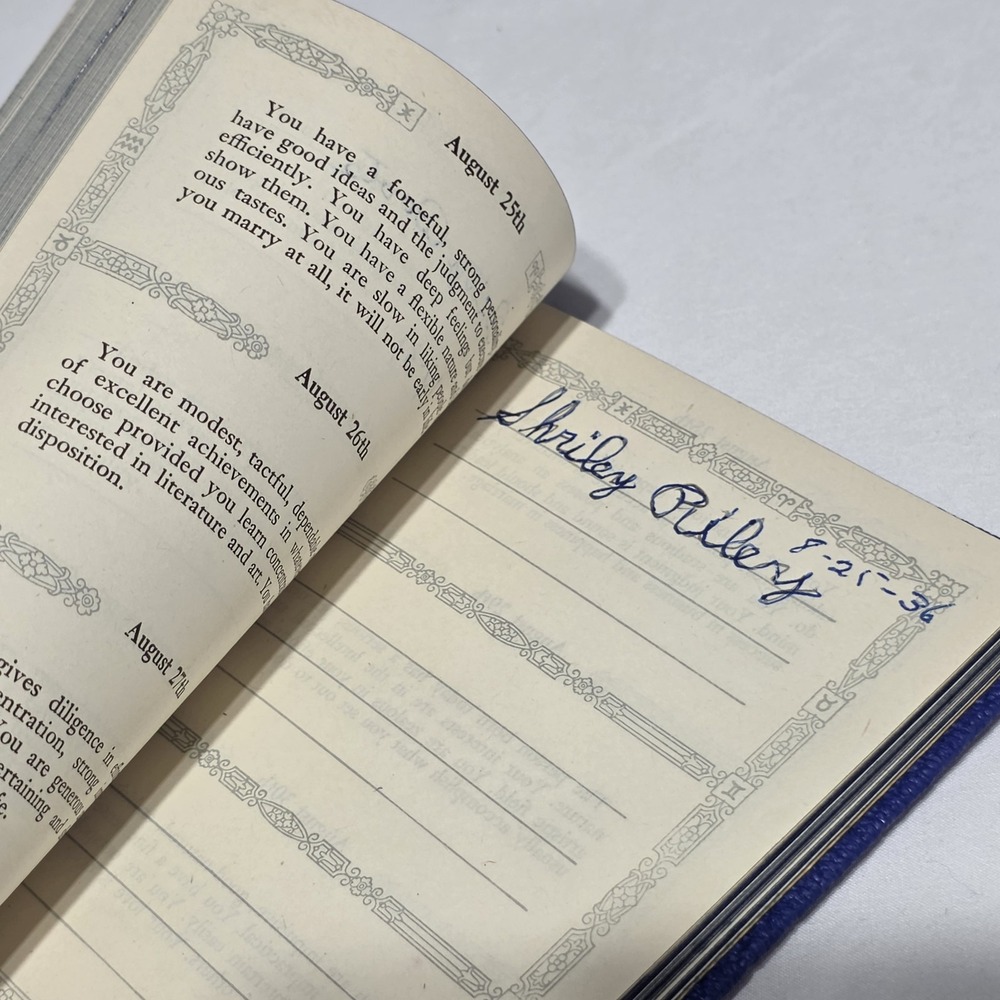 August 25th
You have a forceful, strong
have good ideas and the judgment to
efficiently. You have deep feelings
show them. You have a flexible nature
ous tastes. You are slow in liking
you marry at all, it will not be early in
August 26th
You are modest, tactful,
of excellent achievements in
choose provided you learn
interested in literature and art. You
disposition.
August 27th
gives diligence in
strong
You are generous
and
Shriley Rilley
8-25-36